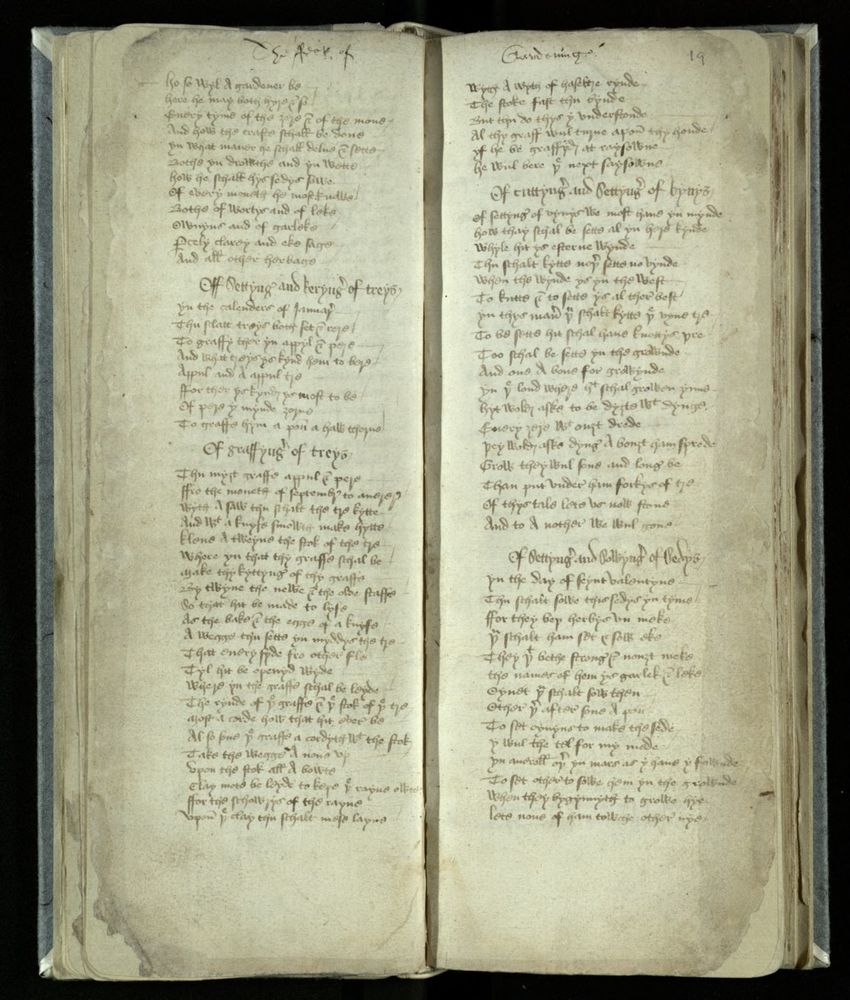 The feate of
ho so wyl A gardener be
here he may both hyre & se
Euery tyme of the yere & of the mone
And how the crafte schall be done
yn what maner he schall delue & sette
Bothe yn drowthe and yn wette
how he schall hys sedys sowe
Of euery moneth he most knowe
Bothe of wortys and of leke
Ownyns and of garleke
Percely clarey and eke sage
And all other herbage
Off Settyng and Reryng of treys
yn the calenders of Januar
Thu schalt treys both set & rere
To graffy ther yn appyl & pere
And what treys ys kynd hem to bere
Appul and A appul tre
ffor ther ys kynde ys most to be
Of pere y mynde yorne
To graffe hym a pon a haw thorne
Of graffyng of treys
Thu myst graffe appul & pere
ffro the moneth of september to auerer
wyth A saw thu schalt the tre kytte
And wt a knyfe smowth make hytte
klene A tweyne the stok of the tre
Where yn that thy graffe schal be
make thy kyttyng of thy graffe
By twyne the newe & the olde staffe
So that hit be made to lyfe
As the bake & the egge of a knyfe
A wegge thu sette yn myddys the tre
That euery syde fro other fle
Tyl hit be openyd wyde
Where yn the graffe schal be leyde
The rynde of þe graffe & þe stok of þe tre
most a corde how that hit euer be
Al so sone þe graffe a cordyth wt the stok
Take the wegge A none vp
Vpon the stok all A bowte
Clay mote be leyde to kepe þe rayne owte
ffor the schowrys of the rayne
Vpon þe clay thu schalt mose layne
Gardening 19
wyth A wyth of haseltre rynde
The stoke fast thu bynde
But thu do thys y vnderstonde
Al thy graff wul turne apon thy honde
yf he be graffyd at raysowne
he wul bere þe next saysowne
Of cuttyng and Settyng of vynys
Of settyng of vynys we most haue yn mynde
how thay schal be sette al yn hers kynde
Whyle hit ys esterne wynde
Thu schalt kytte ner sette no vynde
When the wynde ys yn the west
To kutte & to sette ys al ther best
yn thys maner þu schalt kytte þe vyne tre
To be sette hit schal haue knottys þre
Too schal be sette yn the grownde
And one A boue for growynde
yn þe lond where þt schal growen ynne
hyt wolde aske to be dyȝte wt dynge
Euery yere wt owȝt drede
þey wolde aske dyng A bowȝt ham sprede
Grow they wul sone and long be
Than put vnder ham forkys of tre
Of thys tale lete vs now stone
And to A nother we wul gone
Of Settyng and Sowyng of Sedys
yn the day of seynt valentyne
Thu schalt sowe this sedys yn tyme
ffor they bep herbys vn meke
þu schalt ham set & sow eke
They þt bethe strong & nouȝt meke
the names of hem ys garlek & leke
Oynet þu schalt sow then
Other þer after sone A pon
To set oynyns to make the sede
y wul the tel for my mede
yn aueroll oþer yn mars as y haue y fownde
To set other to sowe hem yn the grownde
When they bygynnyth to growe hye
lete none of ham towche other nye